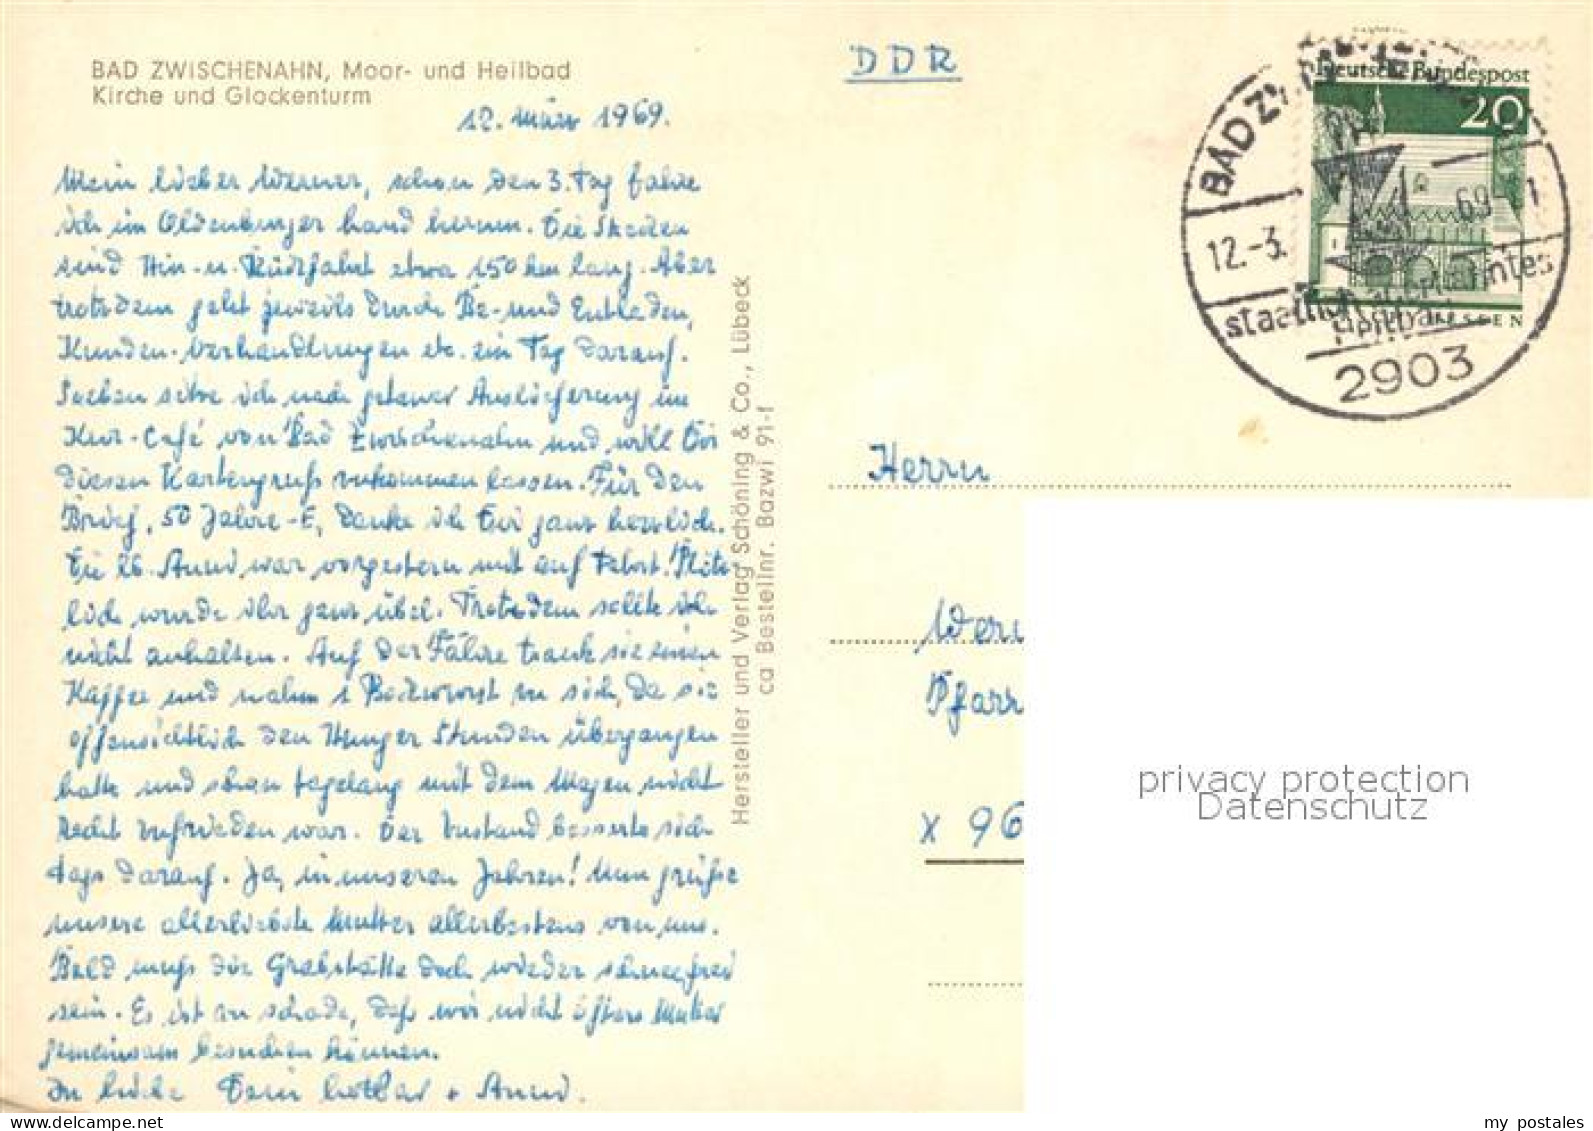 BAD ZWISCHENAHN, Moor- und Heilbad
Kirche und Glockenturm
12. März 1969.
Mein lieber Werner, schon den 3. Tag fahre
ich im Oldenburger Land herum. Die Strecken
sind Hin- u. Rückfahrt etwa 150 km lang. Aber
trotzdem geht jeweils durch Be- und Entladen,
Kunden-Verhandlungen etc. ein Tag darauf.
Soeben sitze ich nach getaner Auslieferung im
Kur-Café von Bad Zwischenahn und will Dir
diesen Kartengruß zukommen lassen. Für den
Brief, 50 Jahre-F, danke ich Dir ganz herzlich.
Die war vorgestern mit auf Fahrt. Plötz
lich wurde ihr ganz übel. Trotzdem sollte ich
nicht anhalten. Auf der Fähre trank sie einen
Kaffee und nahm 1 Bockwurst zu sich, da sie
offensichtlich den Hunger Stunden übergangen
hatte und schon tagelang mit dem Magen nicht
recht zufrieden war. Der Zustand besserte sich
tags darauf. Ja, in unseren Jahren! Nun grüße
unsere allerliebste Mutter allerbestens von uns.
Bald muß die Grabstätte doch wieder schneefrei
sein. Es ist zu schade, daß wir nicht öfters Mutter
gemeinsam besuchen können.
In Liebe Dein Lothar +
Hersteller und Verlag Schöning & Co., Lübeck
ca Bestellnr. Bazwi 91-f
DDR
Deutsche Bundespost
20
BAD ZWISCHENAHN
12.-3.
69-
staatlich anerkanntes
Heilbad
2903
Herrn
Wern
Pfarr
X 96
privacy protection
Datenschutz
my postales